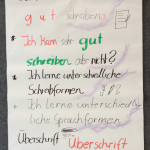 gut schreiben
* Ich kann sehr gut
schreiben aber nicht?
Ich lerne unterschiedliche
Schreibformen
+ Ich lerne unterschied-
liche Sprachformen
Überschrift Überschrift